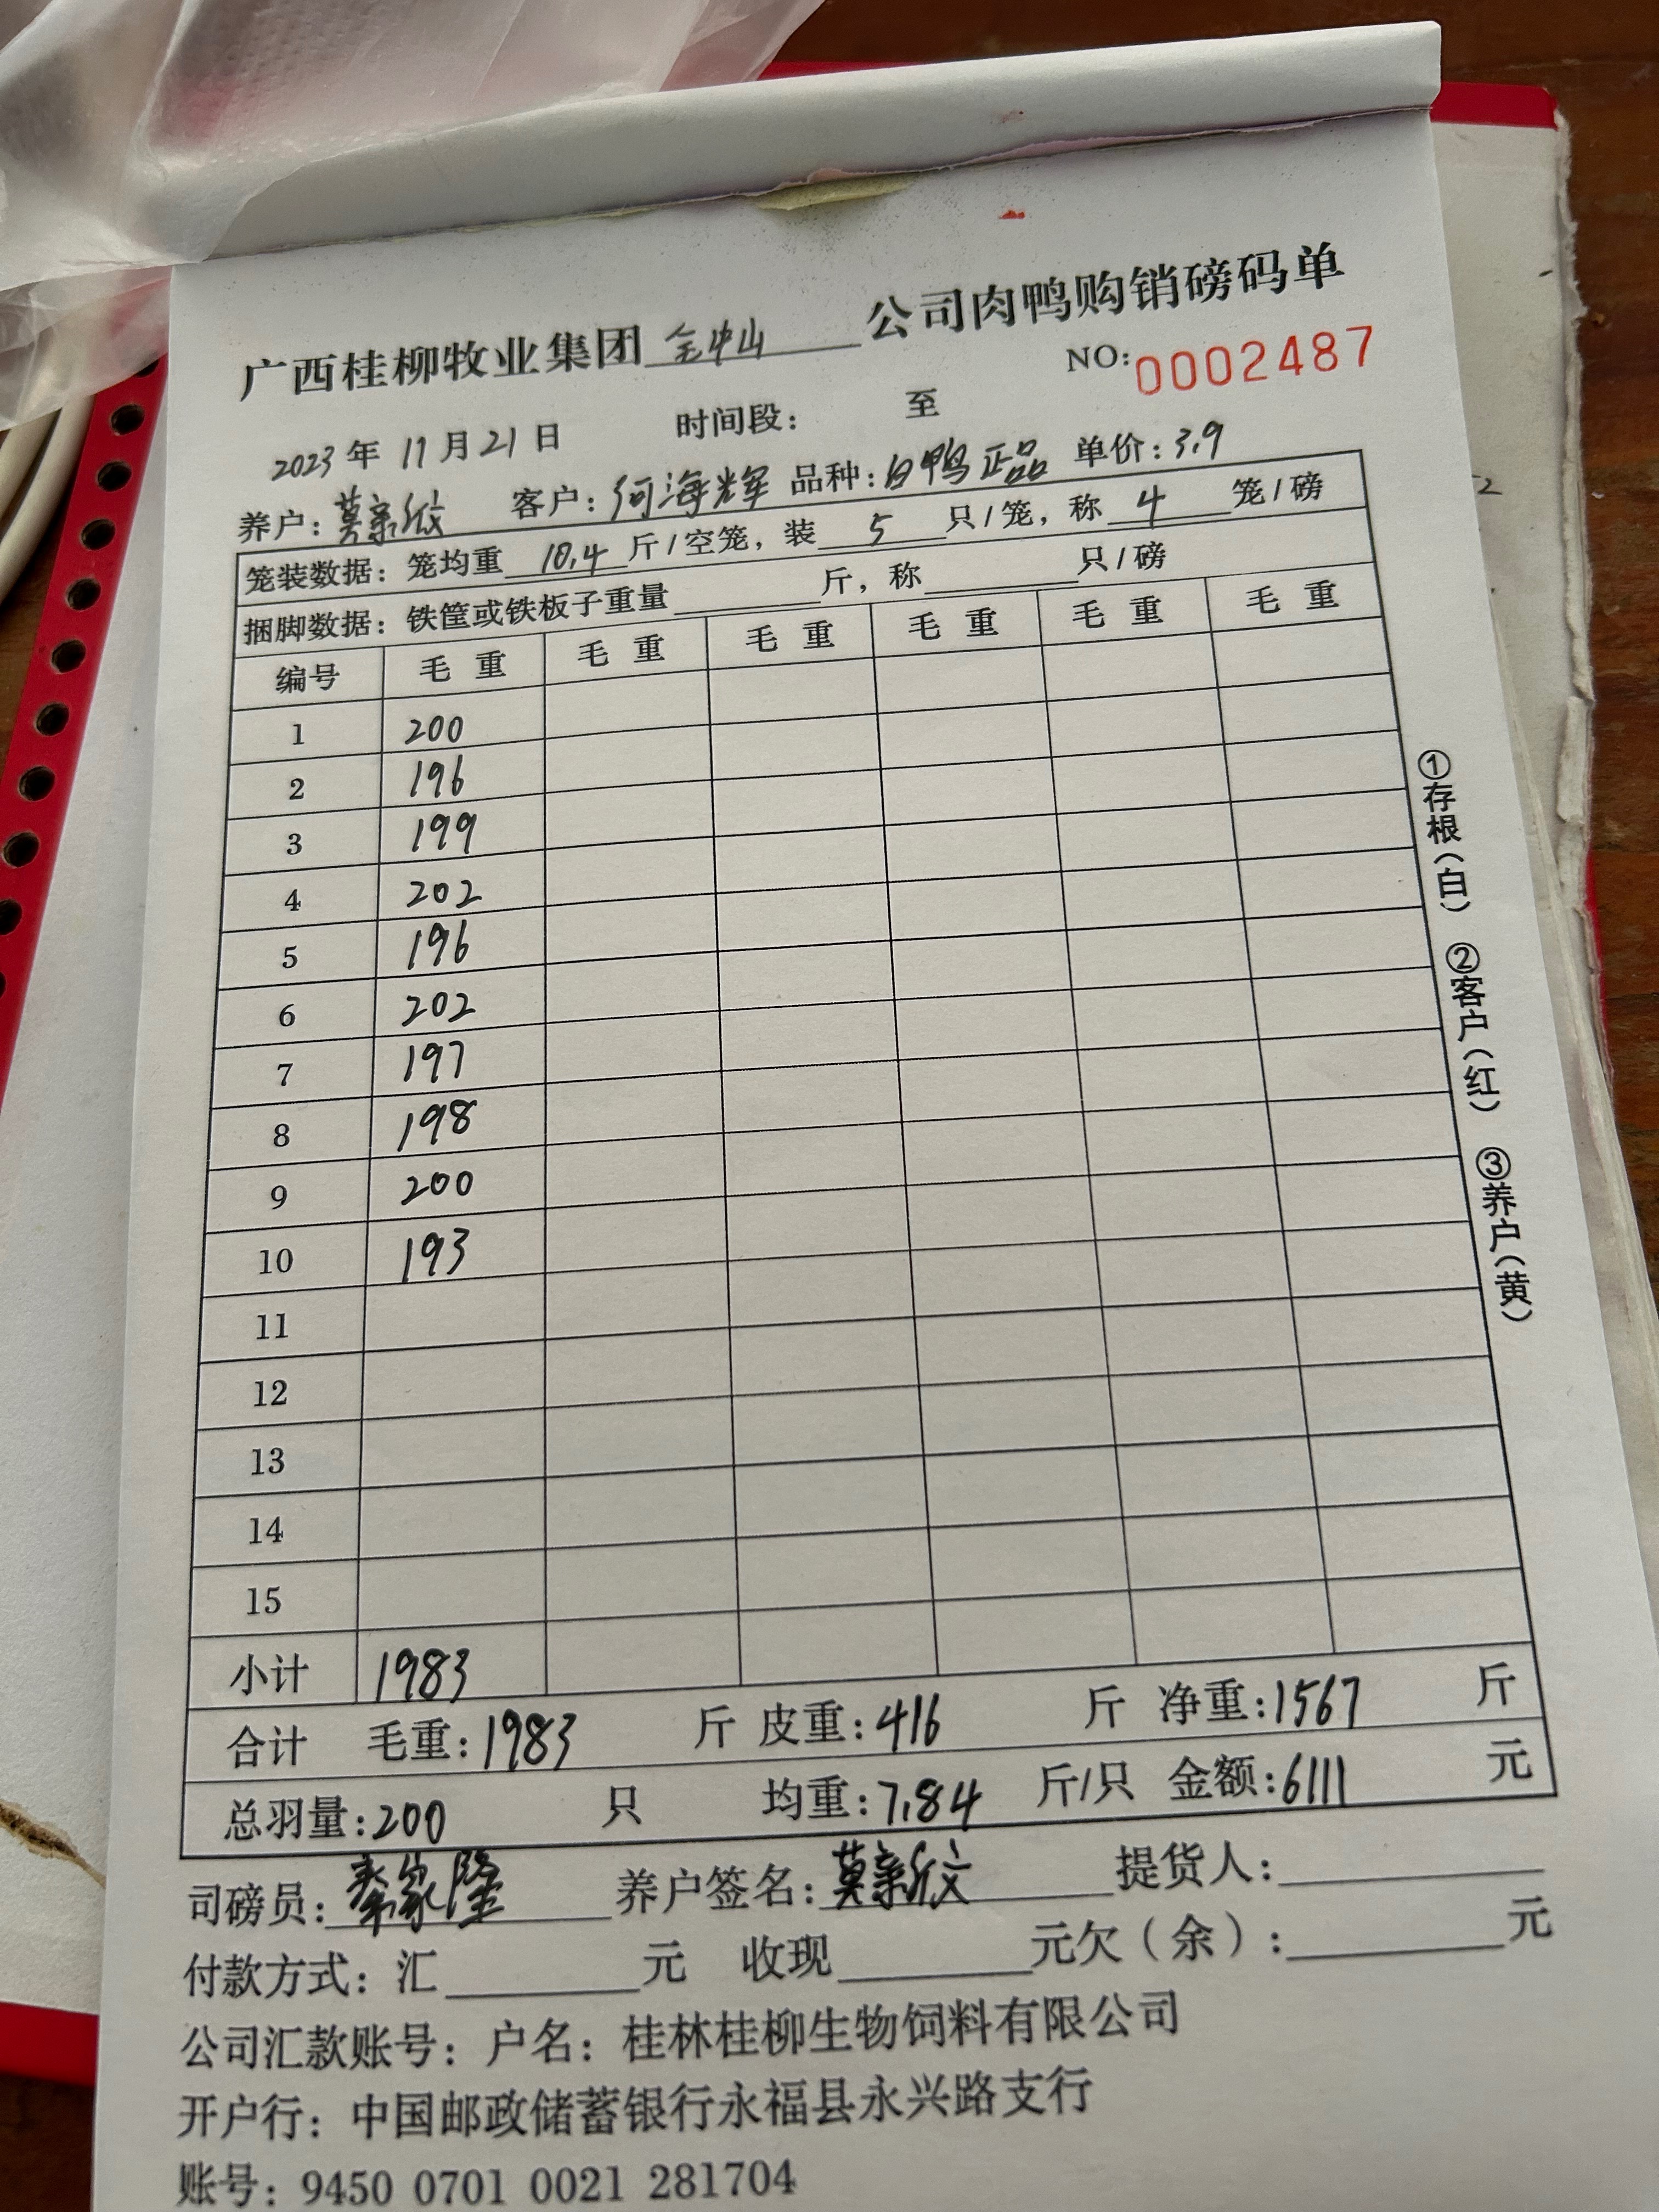 广西桂柳牧业集团 金中山 公司肉鸭购销磅码单
NO:0002487
2023年 11月21日 时间段: 至
养户:莫亲欣 客户:何海辉 品种:白鸭正品 单价:3.9
笼装数据:笼均重 10.4 斤/空笼,装 5 只/笼,称 4 笼/磅
捆脚数据:铁筐或铁板子重量 斤,称 只/磅
编号 毛重 毛重 毛重 毛重 毛重 毛重
1 200
2 196
3 199
4 202
5 196
6 202
7 197
8 198
9 200
10 193
11
12
13
14
15
小计 1983
合计 毛重:1983 斤 皮重:416 斤 净重:1567 斤
总羽量:200 只 均重:7.84 斤/只 金额:6111 元
司磅员:秦家隆 养户签名:莫亲欣 提货人:
付款方式:汇 元 收现 元欠(余): 元
公司汇款账号:户名:桂林桂柳生物饲料有限公司
开户行:中国邮政储蓄银行永福县永兴路支行
账号:9450 0701 0021 281704
①存根(白) ②客户(红) ③养户(黄)